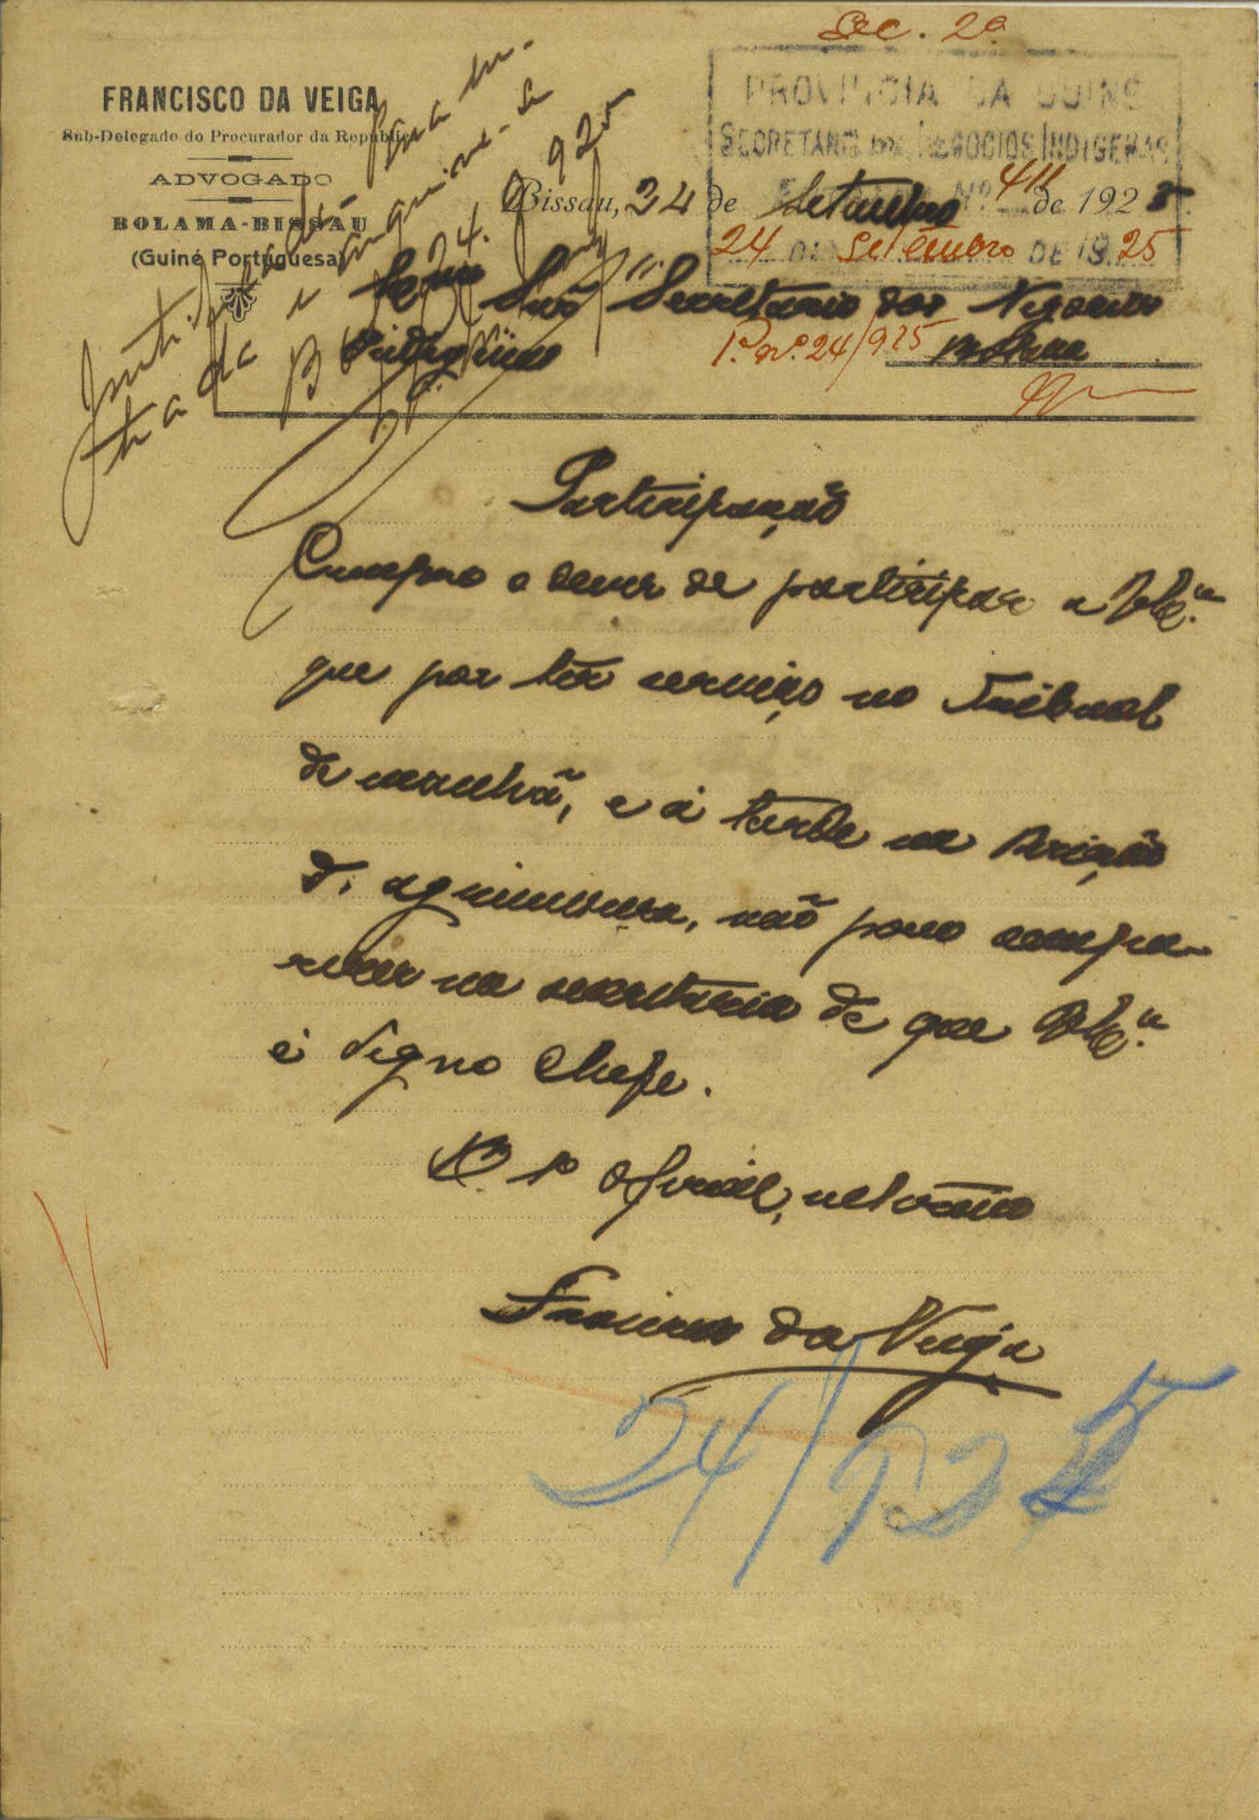 Sec. 2ª
FRANCISCO DA VEIGA
Sub-Delegado do Procurador da Republica
ADVOGADO
BOLAMA-BISSAU
(Guiné Portuguesa)
PROVINCIA DA GUINÉ
SECRETARIA DOS NEGOCIOS INDIGENAS
Nº 411
24 DE Setembro DE 1925
Bissau, 24 de Setembro de 1925
Exmo Snr Secretario dos Negocios
Indigenas
Bolama
P.º nº 24/925
24. 9 925
Participação
Cumpro o dever de participar a V. Ex.ª
que por ter serviço no Tribunal
de manhã, e á tarde na Secção
d'agrimensura, não posso compa-
recer na secretaria de que V. Ex.ª
é digno Chefe.
O 1º Oficial,
Francisco da Veiga
24/925